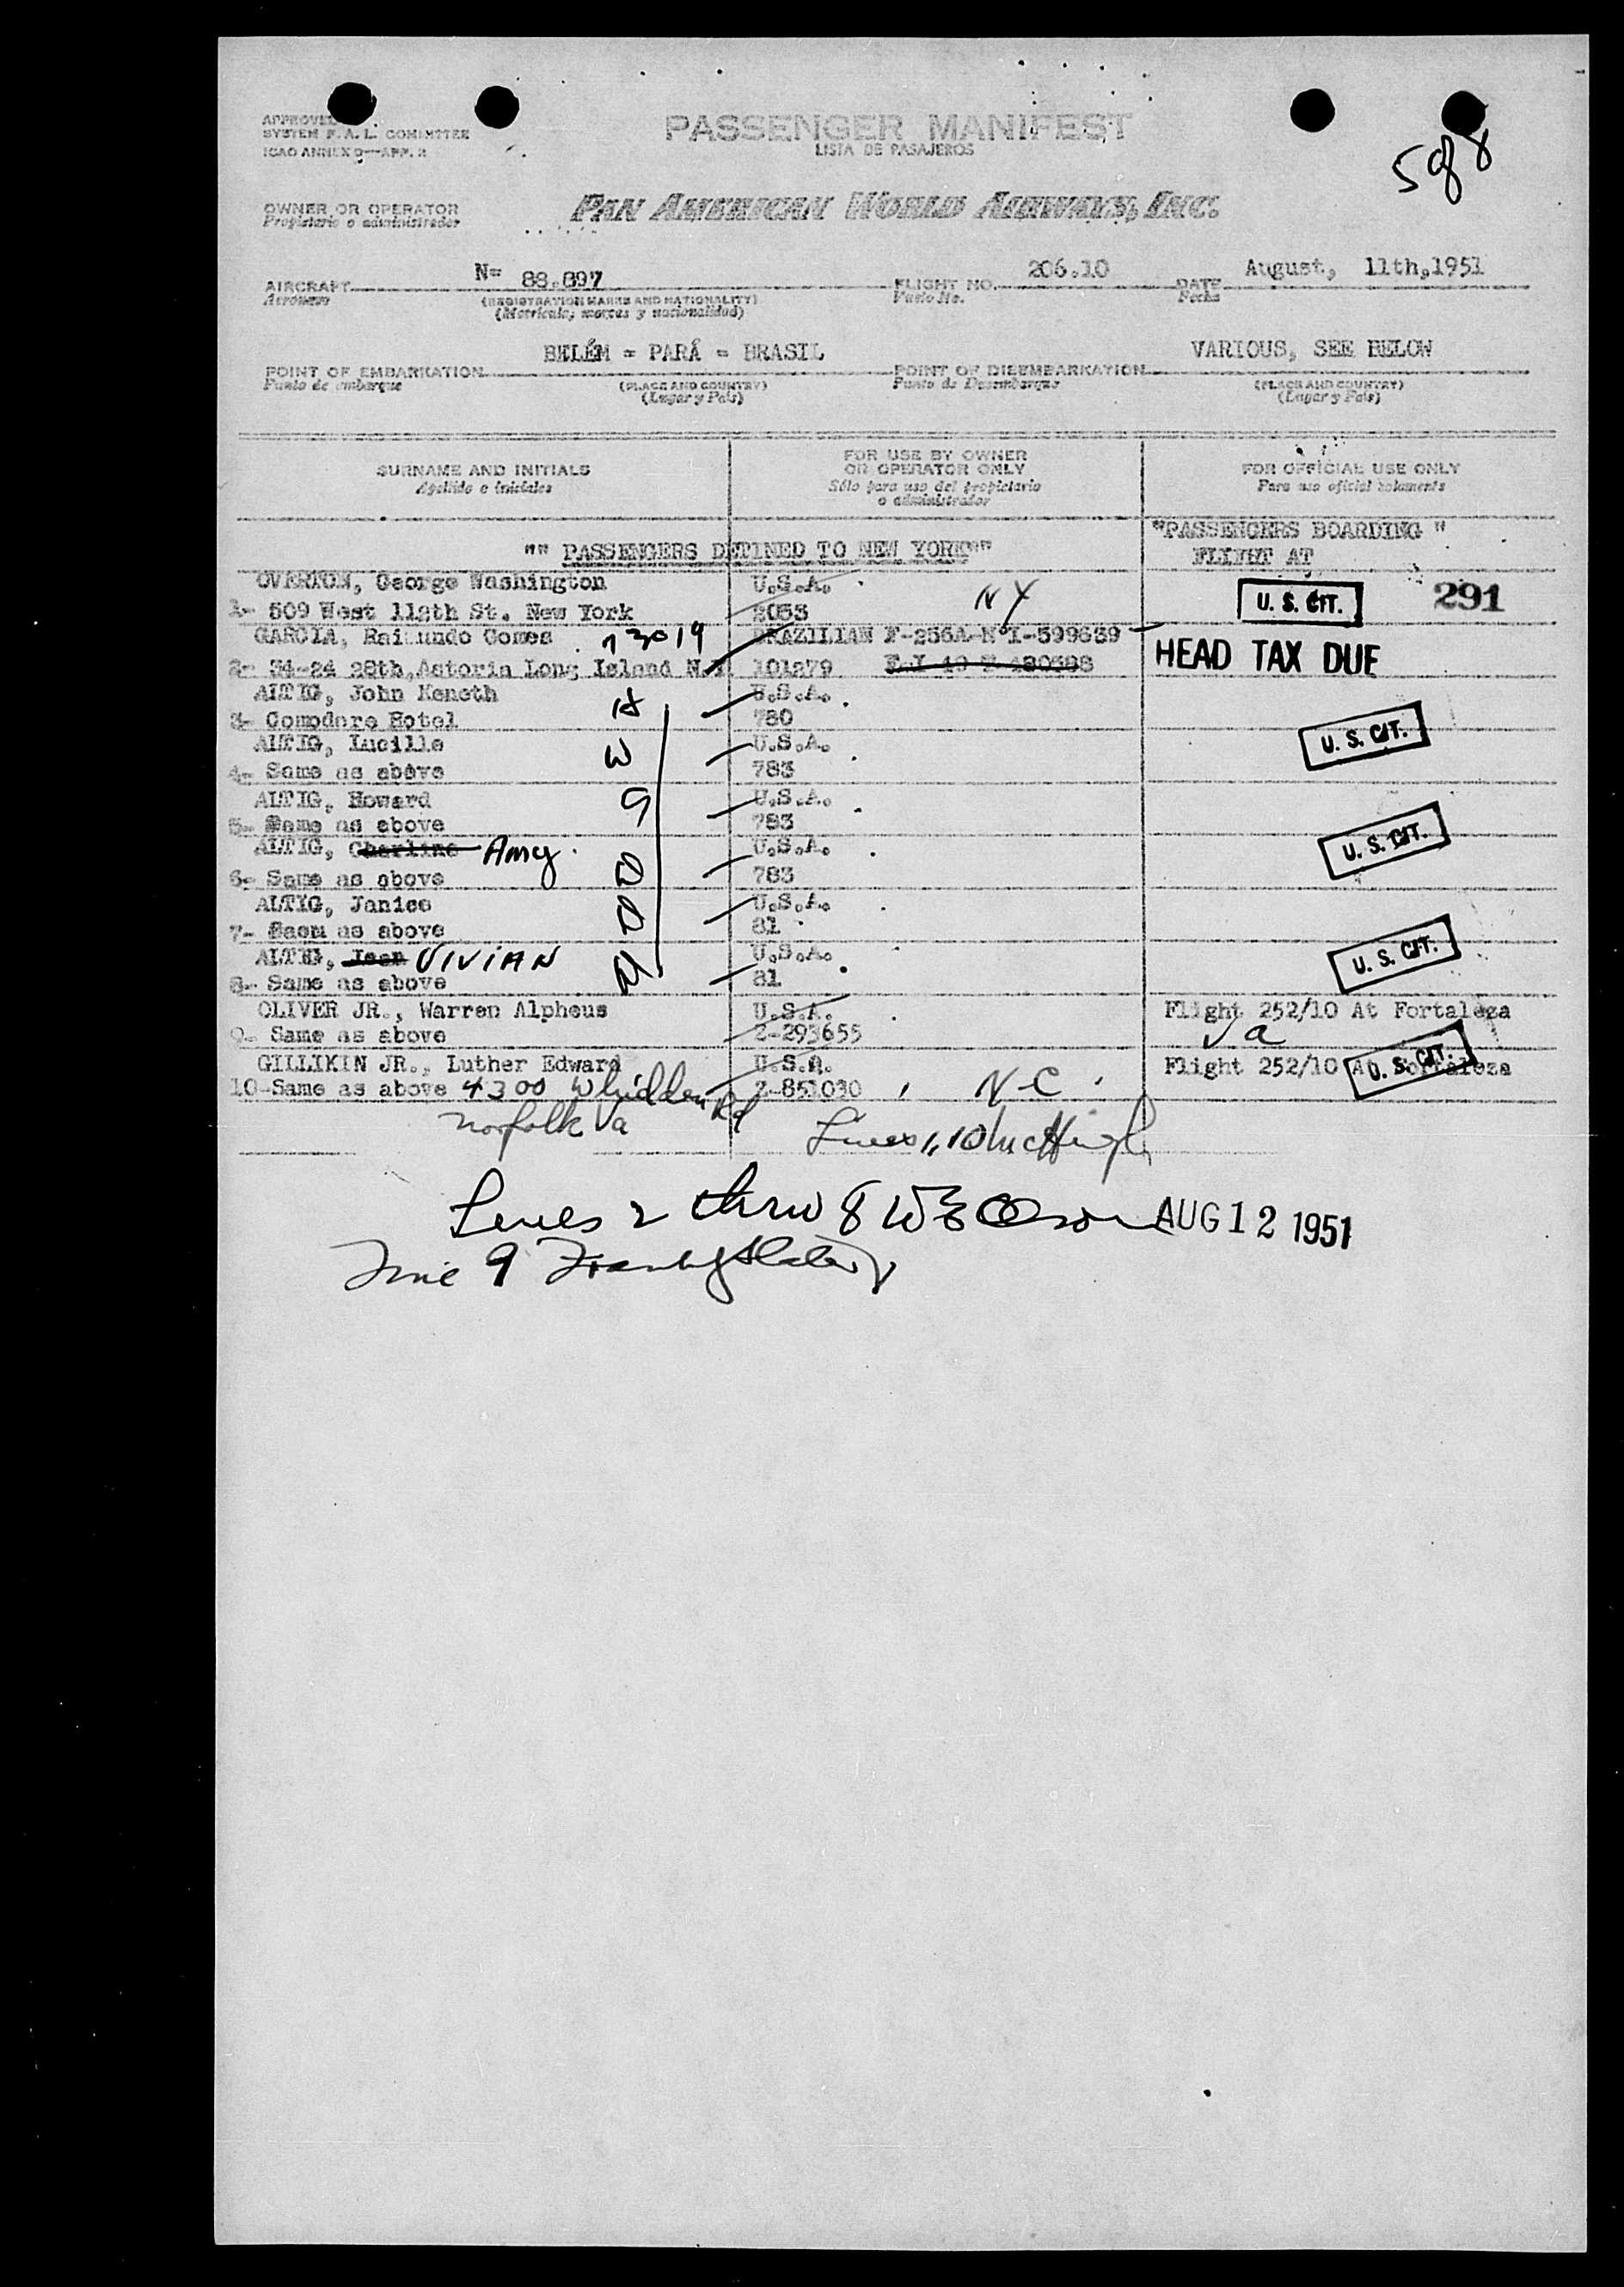 APPROVED
SYSTEM F. A. L. COMMITTEE
ICAO ANNEX 9—APP. 2
PASSENGER MANIFEST
LISTA DE PASAJEROS
5 of 8
OWNER OR OPERATOR
Propietario o administrador
PAN AMERICAN WORLD AIRWAYS, INC.
AIRCRAFT N= 88.897 FLIGHT NO. 206.10 DATE August, 11th,1951
Aeronave (REGISTRATION MARKS AND NATIONALITY) Vuelo No. Fecha
(Matricula, marcas y nacionalidad)
BELÉM = PARÁ = BRASIL VARIOUS, SEE BELOW
POINT OF EMBARKATION POINT OF DISEMBARKATION
Punto de embarque (PLACE AND COUNTRY) Punto de Desembarque (PLACE AND COUNTRY)
(Lugar y País) (Lugar y País)
SURNAME AND INITIALS FOR USE BY OWNER OR OPERATOR ONLY FOR OFFICIAL USE ONLY
Apellido e iniciales Sólo para uso del propietario o administrador Para uso oficial solamente
"" PASSENGERS DETINED TO NEW YORK"" "PASSENGERS BOARDING "
FLIGHT AT
OVERTON, George Washington U.S.A. NY U. S. CIT. 291
1- 509 West 112th St. New York 2053
GARCIA, Raimundo Gomes 73019 BRAZILIAN F-256A-NºI-599659 HEAD TAX DUE
2- 34-24 28th,Astoria Long Island N.Y 101279
ALTIG, John Keneth H U.S.A.
3- Comodore Hotel 780 U. S. CIT.
ALTIG, Lucille W U.S.A.
4- Same as above 783
ALTIG, Howard S U.S.A.
5- Same as above 783 U. S. CIT.
ALTIG, Charline Amy U.S.A.
6- Same as above D 783
ALTIG, Janice D U.S.A.
7- Saem as above 81 U. S. CIT.
ALTIG, Jean VIVIAN D U.S.A.
8- Same as above 81
OLIVER JR., Warren Alpheus U.S.A. Flight 252/10 At Fortaleza
9- Same as above 2-293655 Va
GILLIKIN JR., Luther Edward U.S.A. Flight 252/10 At Fortaleza U. S. CIT.
10-Same as above 4300 Whidden Rd 2-851030 N-C
Norfolk Va Lines 1, 10
Lines 2 thru 8 W E Olson AUG 12 1951
Line 9